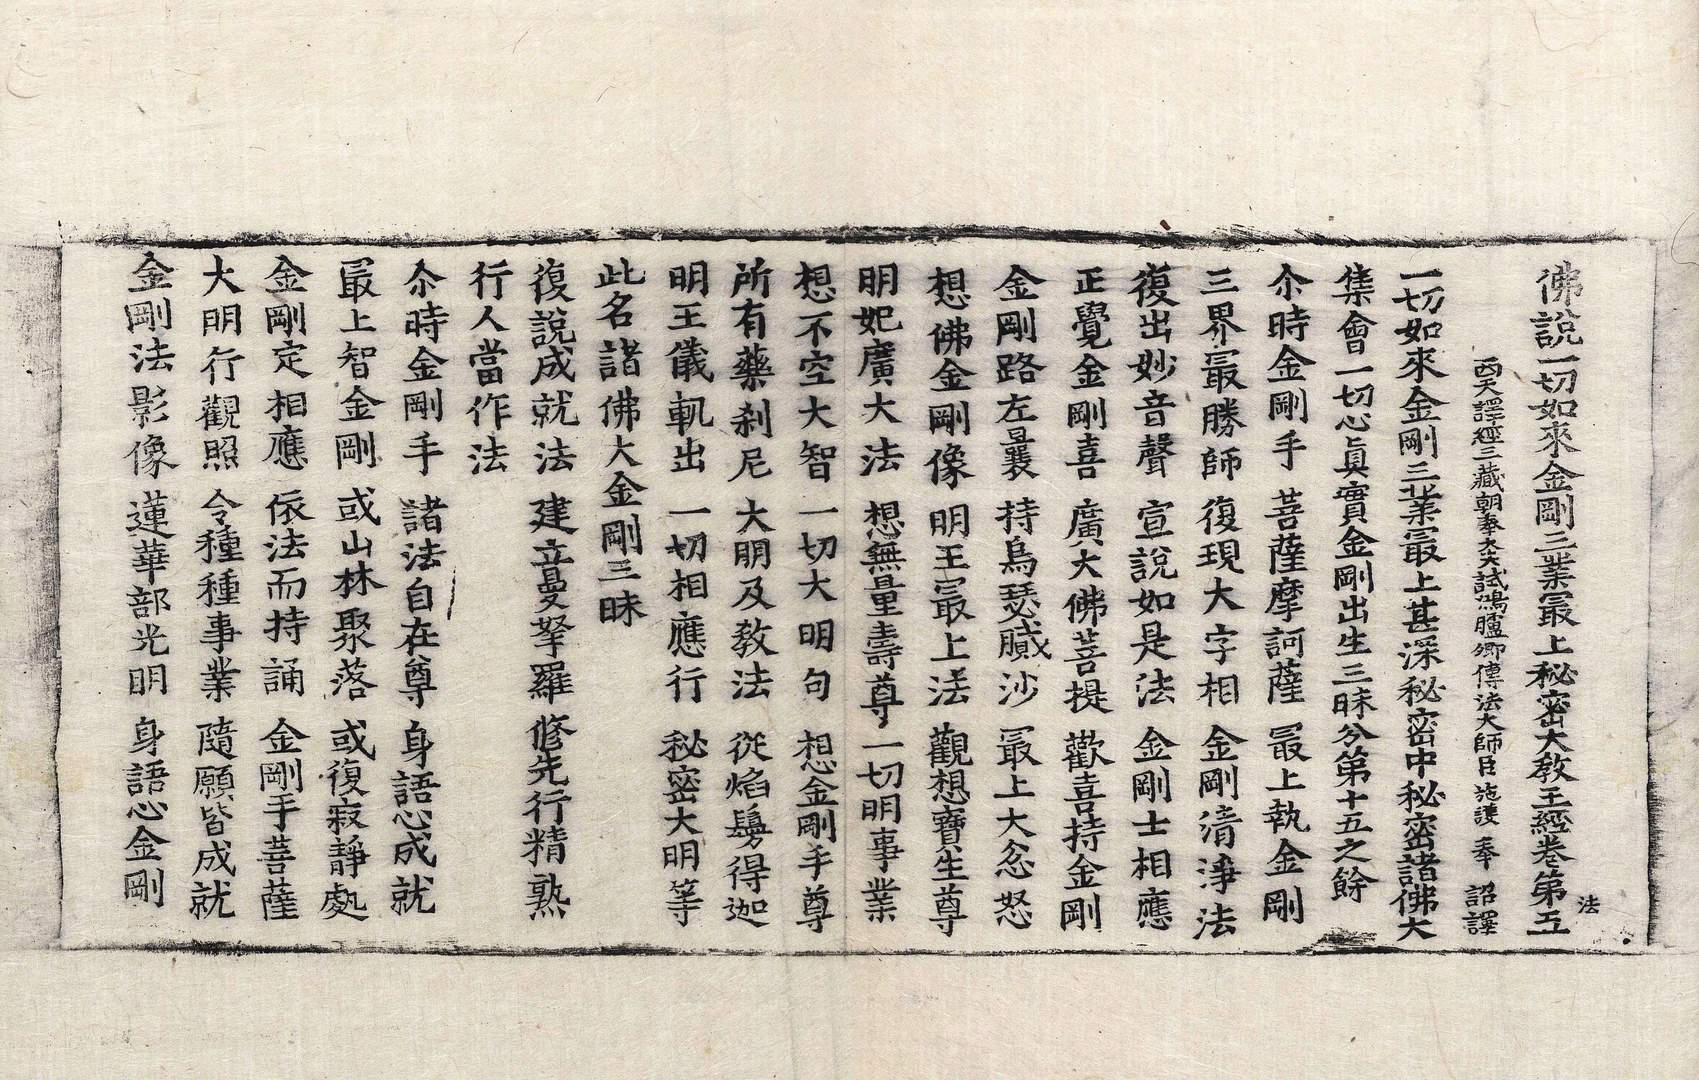 佛說一切如來金剛三業冣上秘密大教王經卷第五
法
西天譯經三藏朝奉大夫試鴻臚卿傳法大師臣施護奉 詔譯
一切如來金剛三業冣上甚深秘密中秘密諸佛大
集會一切心眞實金剛出生三昧分第十五之餘
尒時金剛手 菩薩摩訶薩 冣上執金剛
三界冣勝師 復現大字相 金剛清淨法
復出妙音聲 宣說如是法 金剛士相應
正覺金剛喜 廣大佛菩提 歡喜持金剛
金剛路左曩 持烏瑟膩沙 冣上大忿怒
想佛金剛像 明王冣上法 觀想寶生尊
明妃廣大法 想無量壽尊 一切明事業
想不空大智 一切大明句 想金剛手尊
所有藥刹尼 大明及敎法 從焰鬘得迦
明王儀軌出 一切相應行 秘密大明等
此名諸佛大金剛三昧
復說成就法 建立曼拏羅 修先行精熟
行人當作法
尒時金剛手 諸法自在尊 身語心成就
冣上智金剛 或山林聚落 或復寂靜處
金剛定相應 依法而持誦 金剛手菩薩
大明行觀照 令種種事業 隨願皆成就
金剛法影像 蓮華部光明 身語心金剛